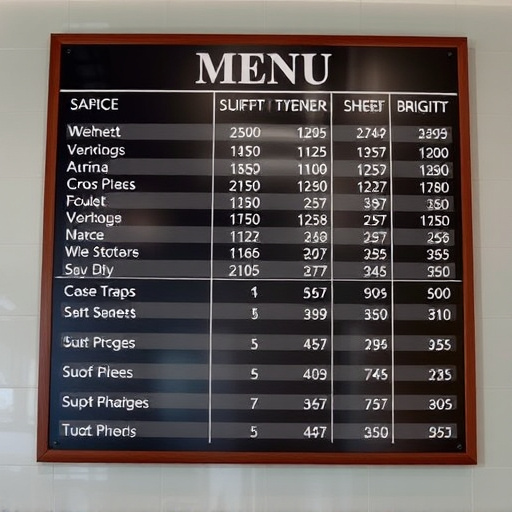 MENU
SAPICE SLIFFT TYENER SHEEF BRIGITT
Welnett 2500 1295
Verktogs 1125 1357 1200
Atrina 1100 1257 1290
Cros Plees 2150 1290 1227 1780
Foulet 257
Vertogs 1750 1258 257 1250
Narce 257 256
Wle Stotars 1166 207 355
Sev Dly 2105 277 345 350
Case Traps 557 500
Sert Senees 5 399 350 310
Proges 5 457 295 355
Suof Plees 5 409 745 235
Supt Phalges 7 367 757 305
Tuct Pheds 5 447 350 353